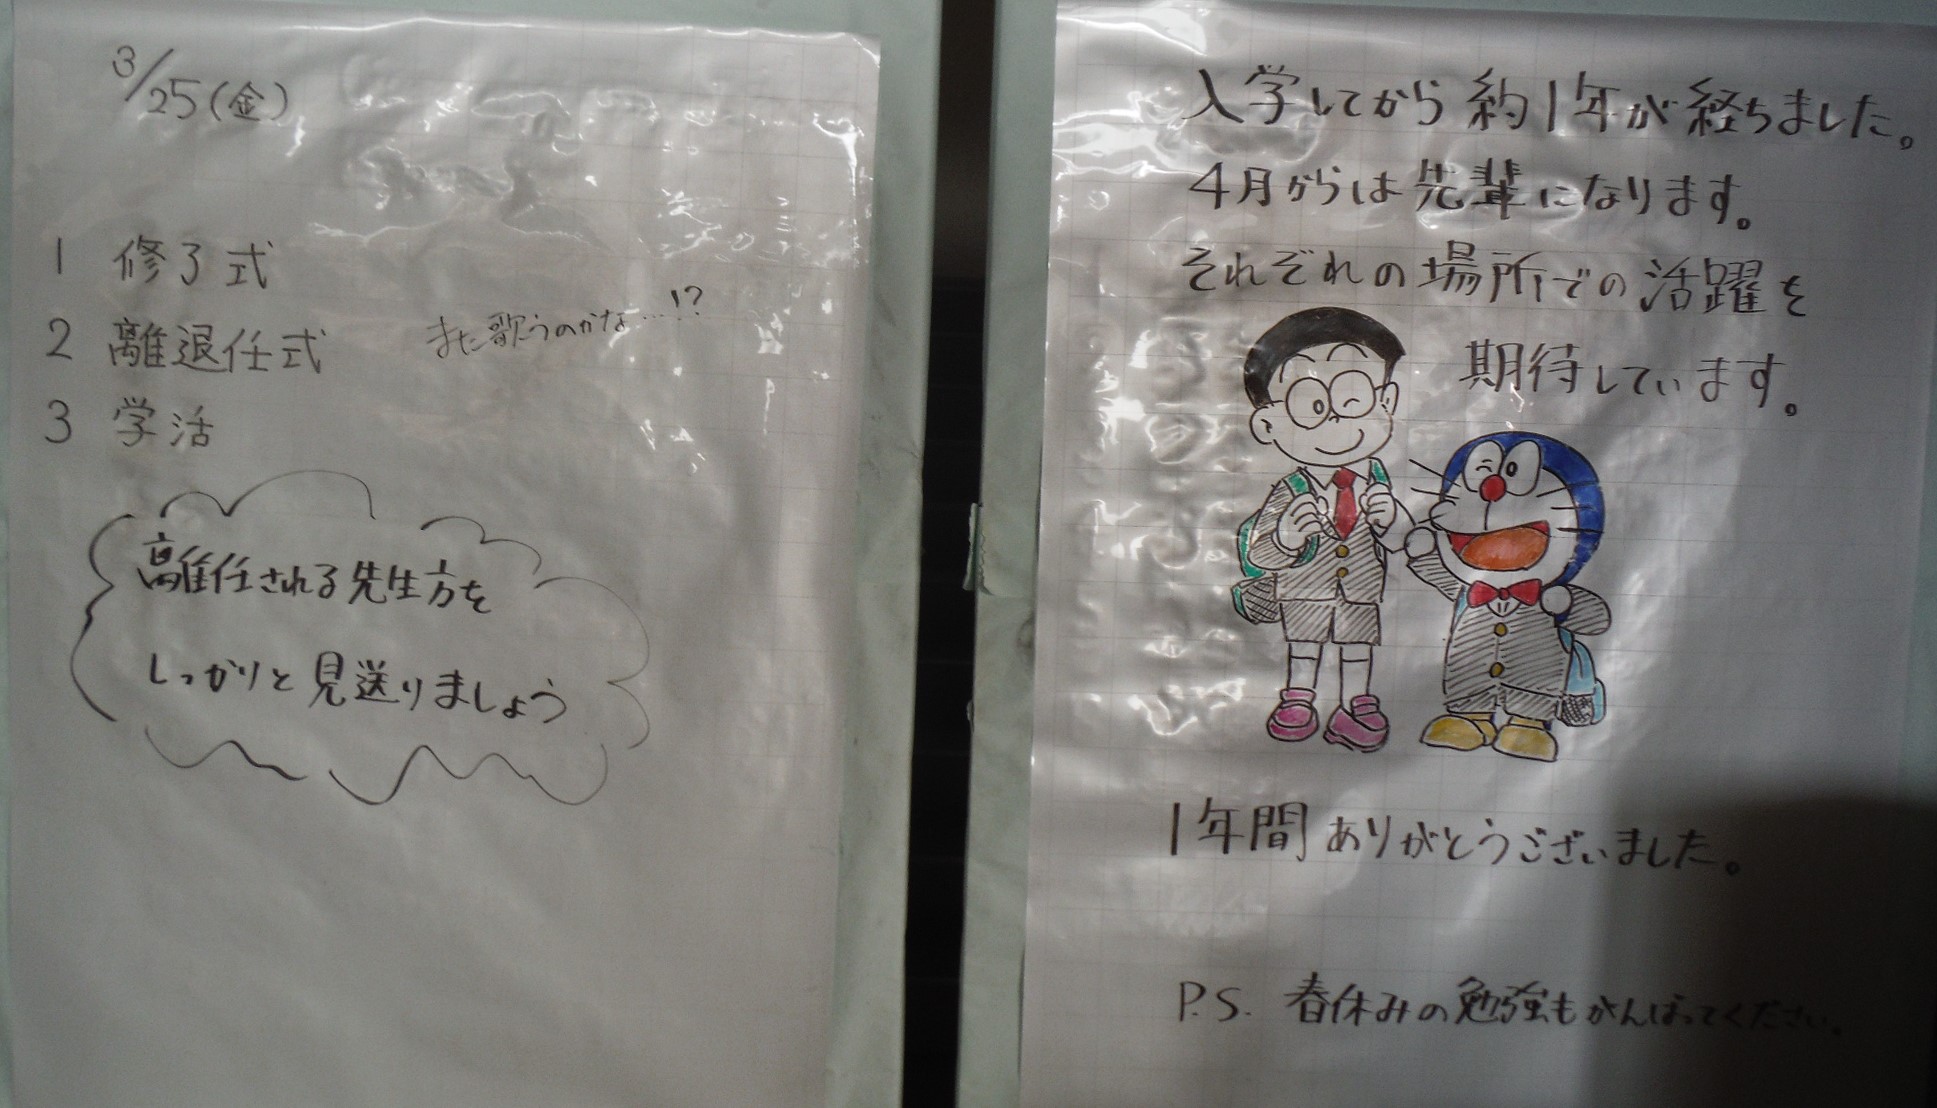 3/25(金)
1 修了式
2 離退任式 また歌うのかな…!?
3 学活
離任される先生方を
しっかりと見送りましょう
入学してから約1年が経ちました。
4月からは先輩になります。
それぞれの場所での活躍を
期待しています。
1年間ありがとうございました。
P.S. 春休みの勉強もがんばってください。